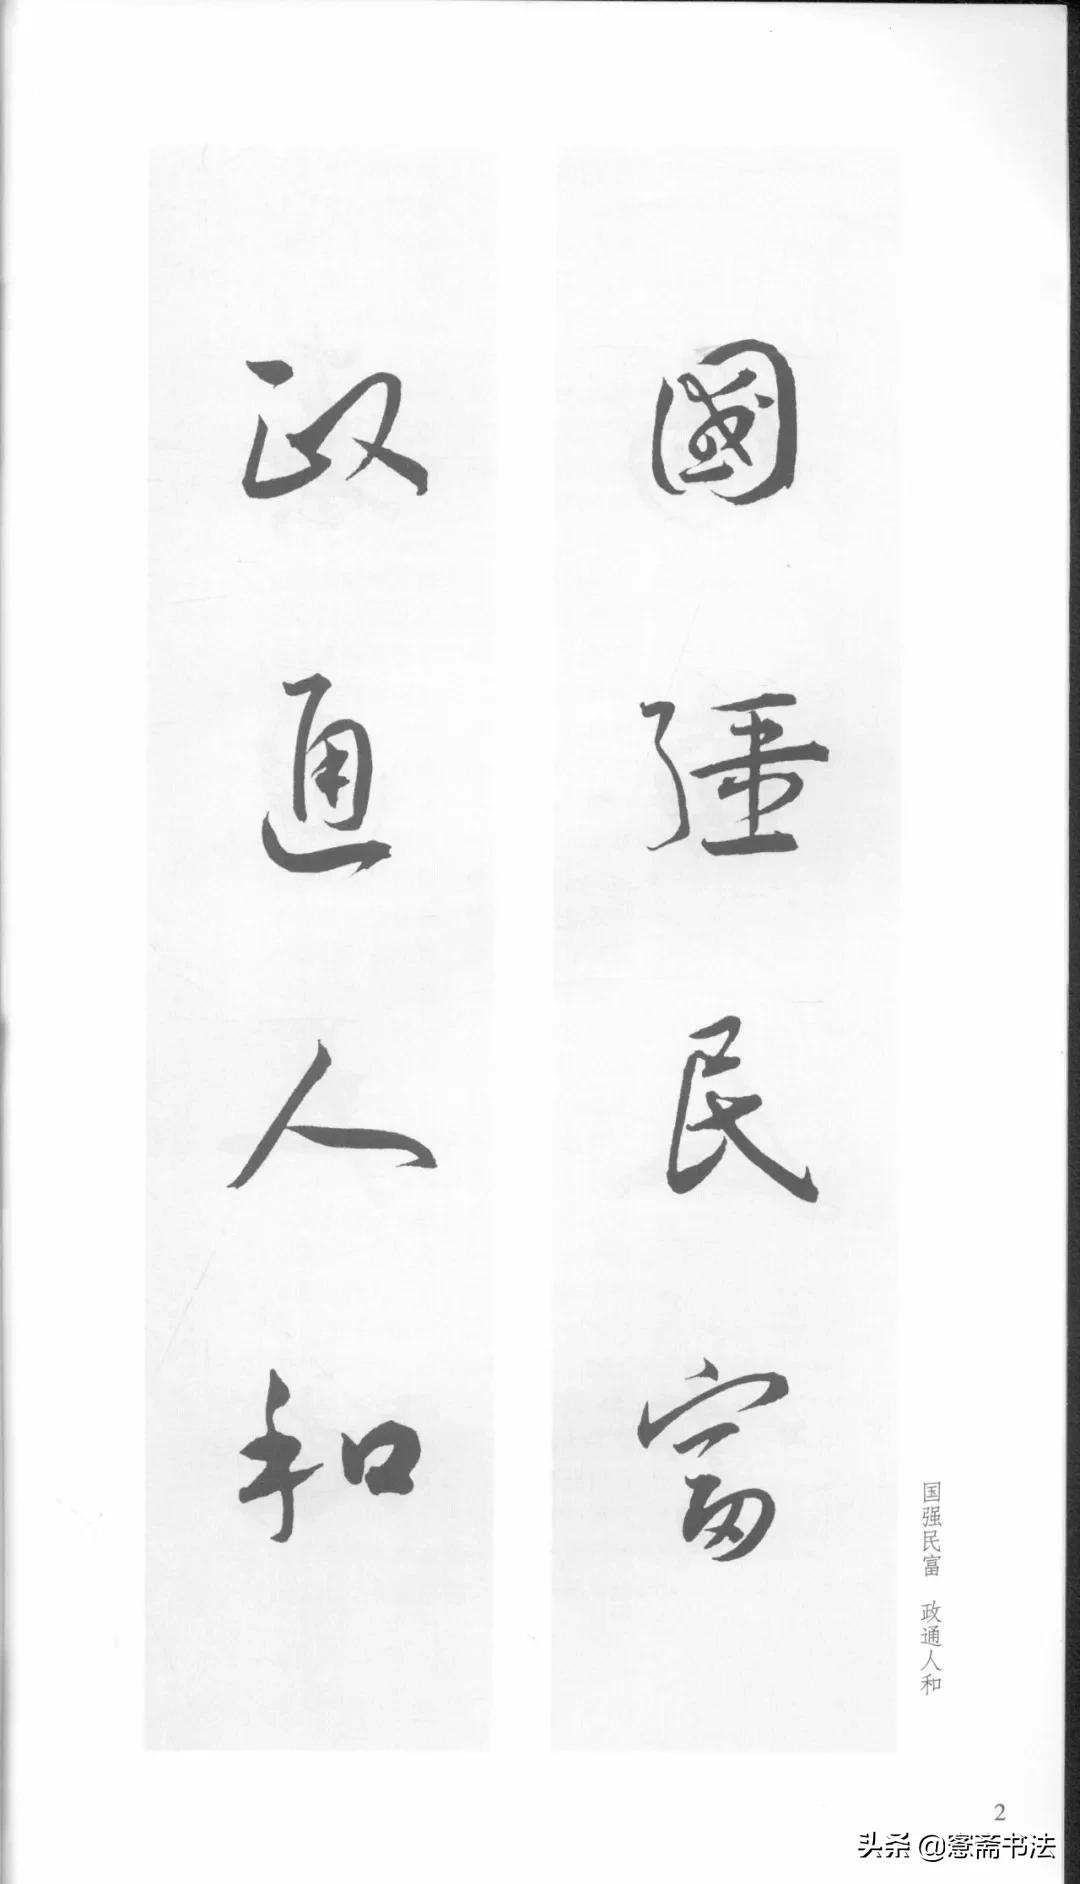 國彊民富
政通人和
国强民富 政通人和
2
头条 @窓斋书法